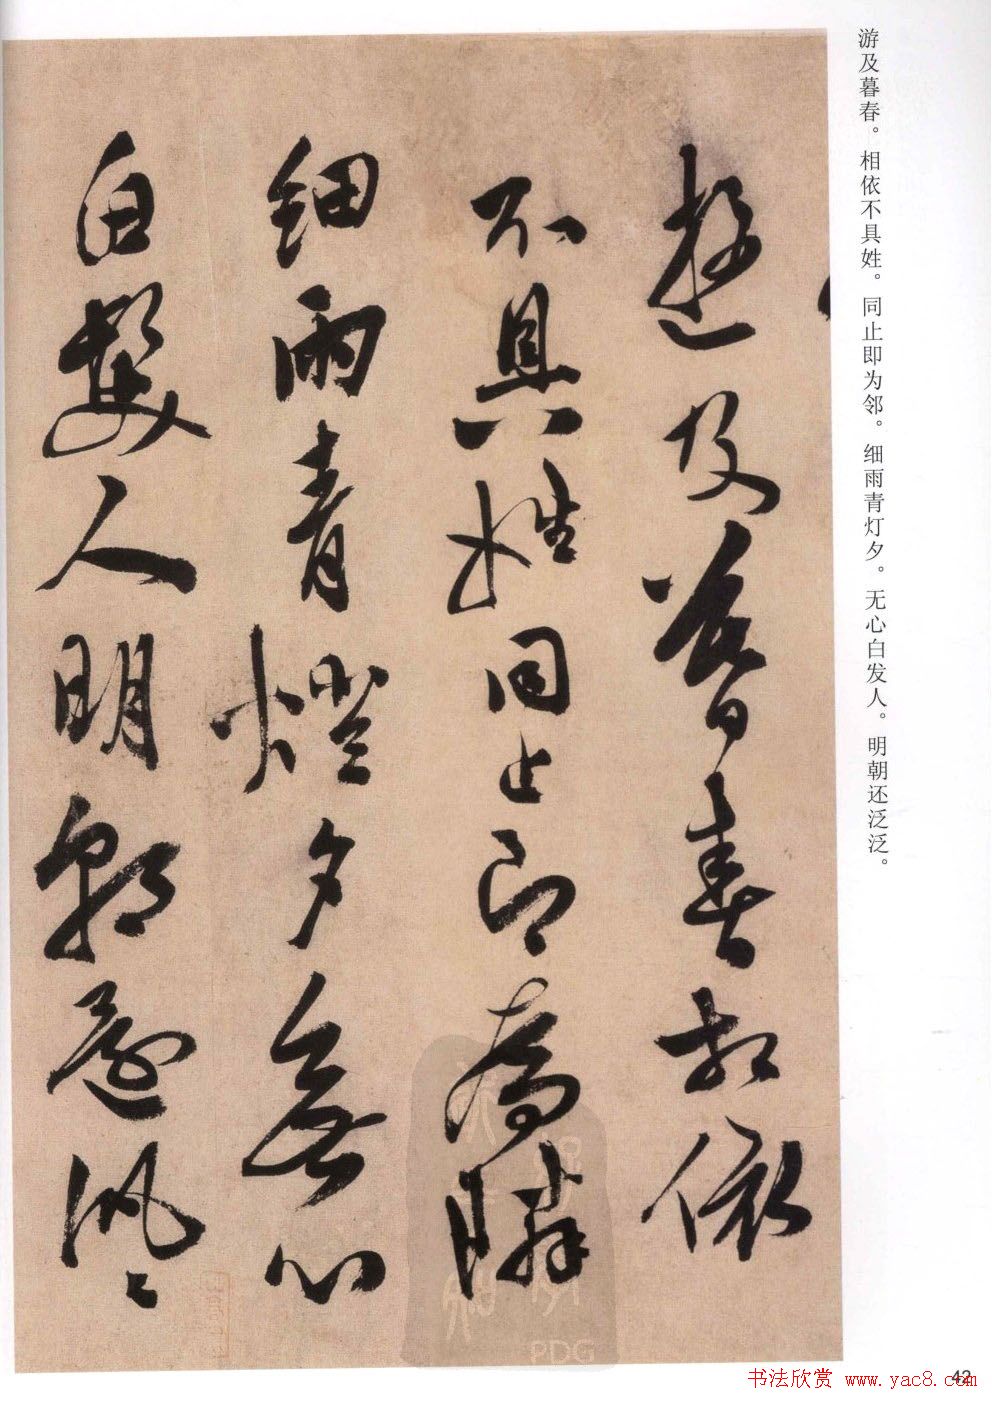 游及暮春。相依不具姓。同止即为邻。细雨青灯夕。无心白发人。明朝还泛泛。
遊及暮春相依
不具姓同止即為隣
細雨青燈夕無心
白髮人明朝還汎〻
PDG
42
书法欣赏 www.yac8.com